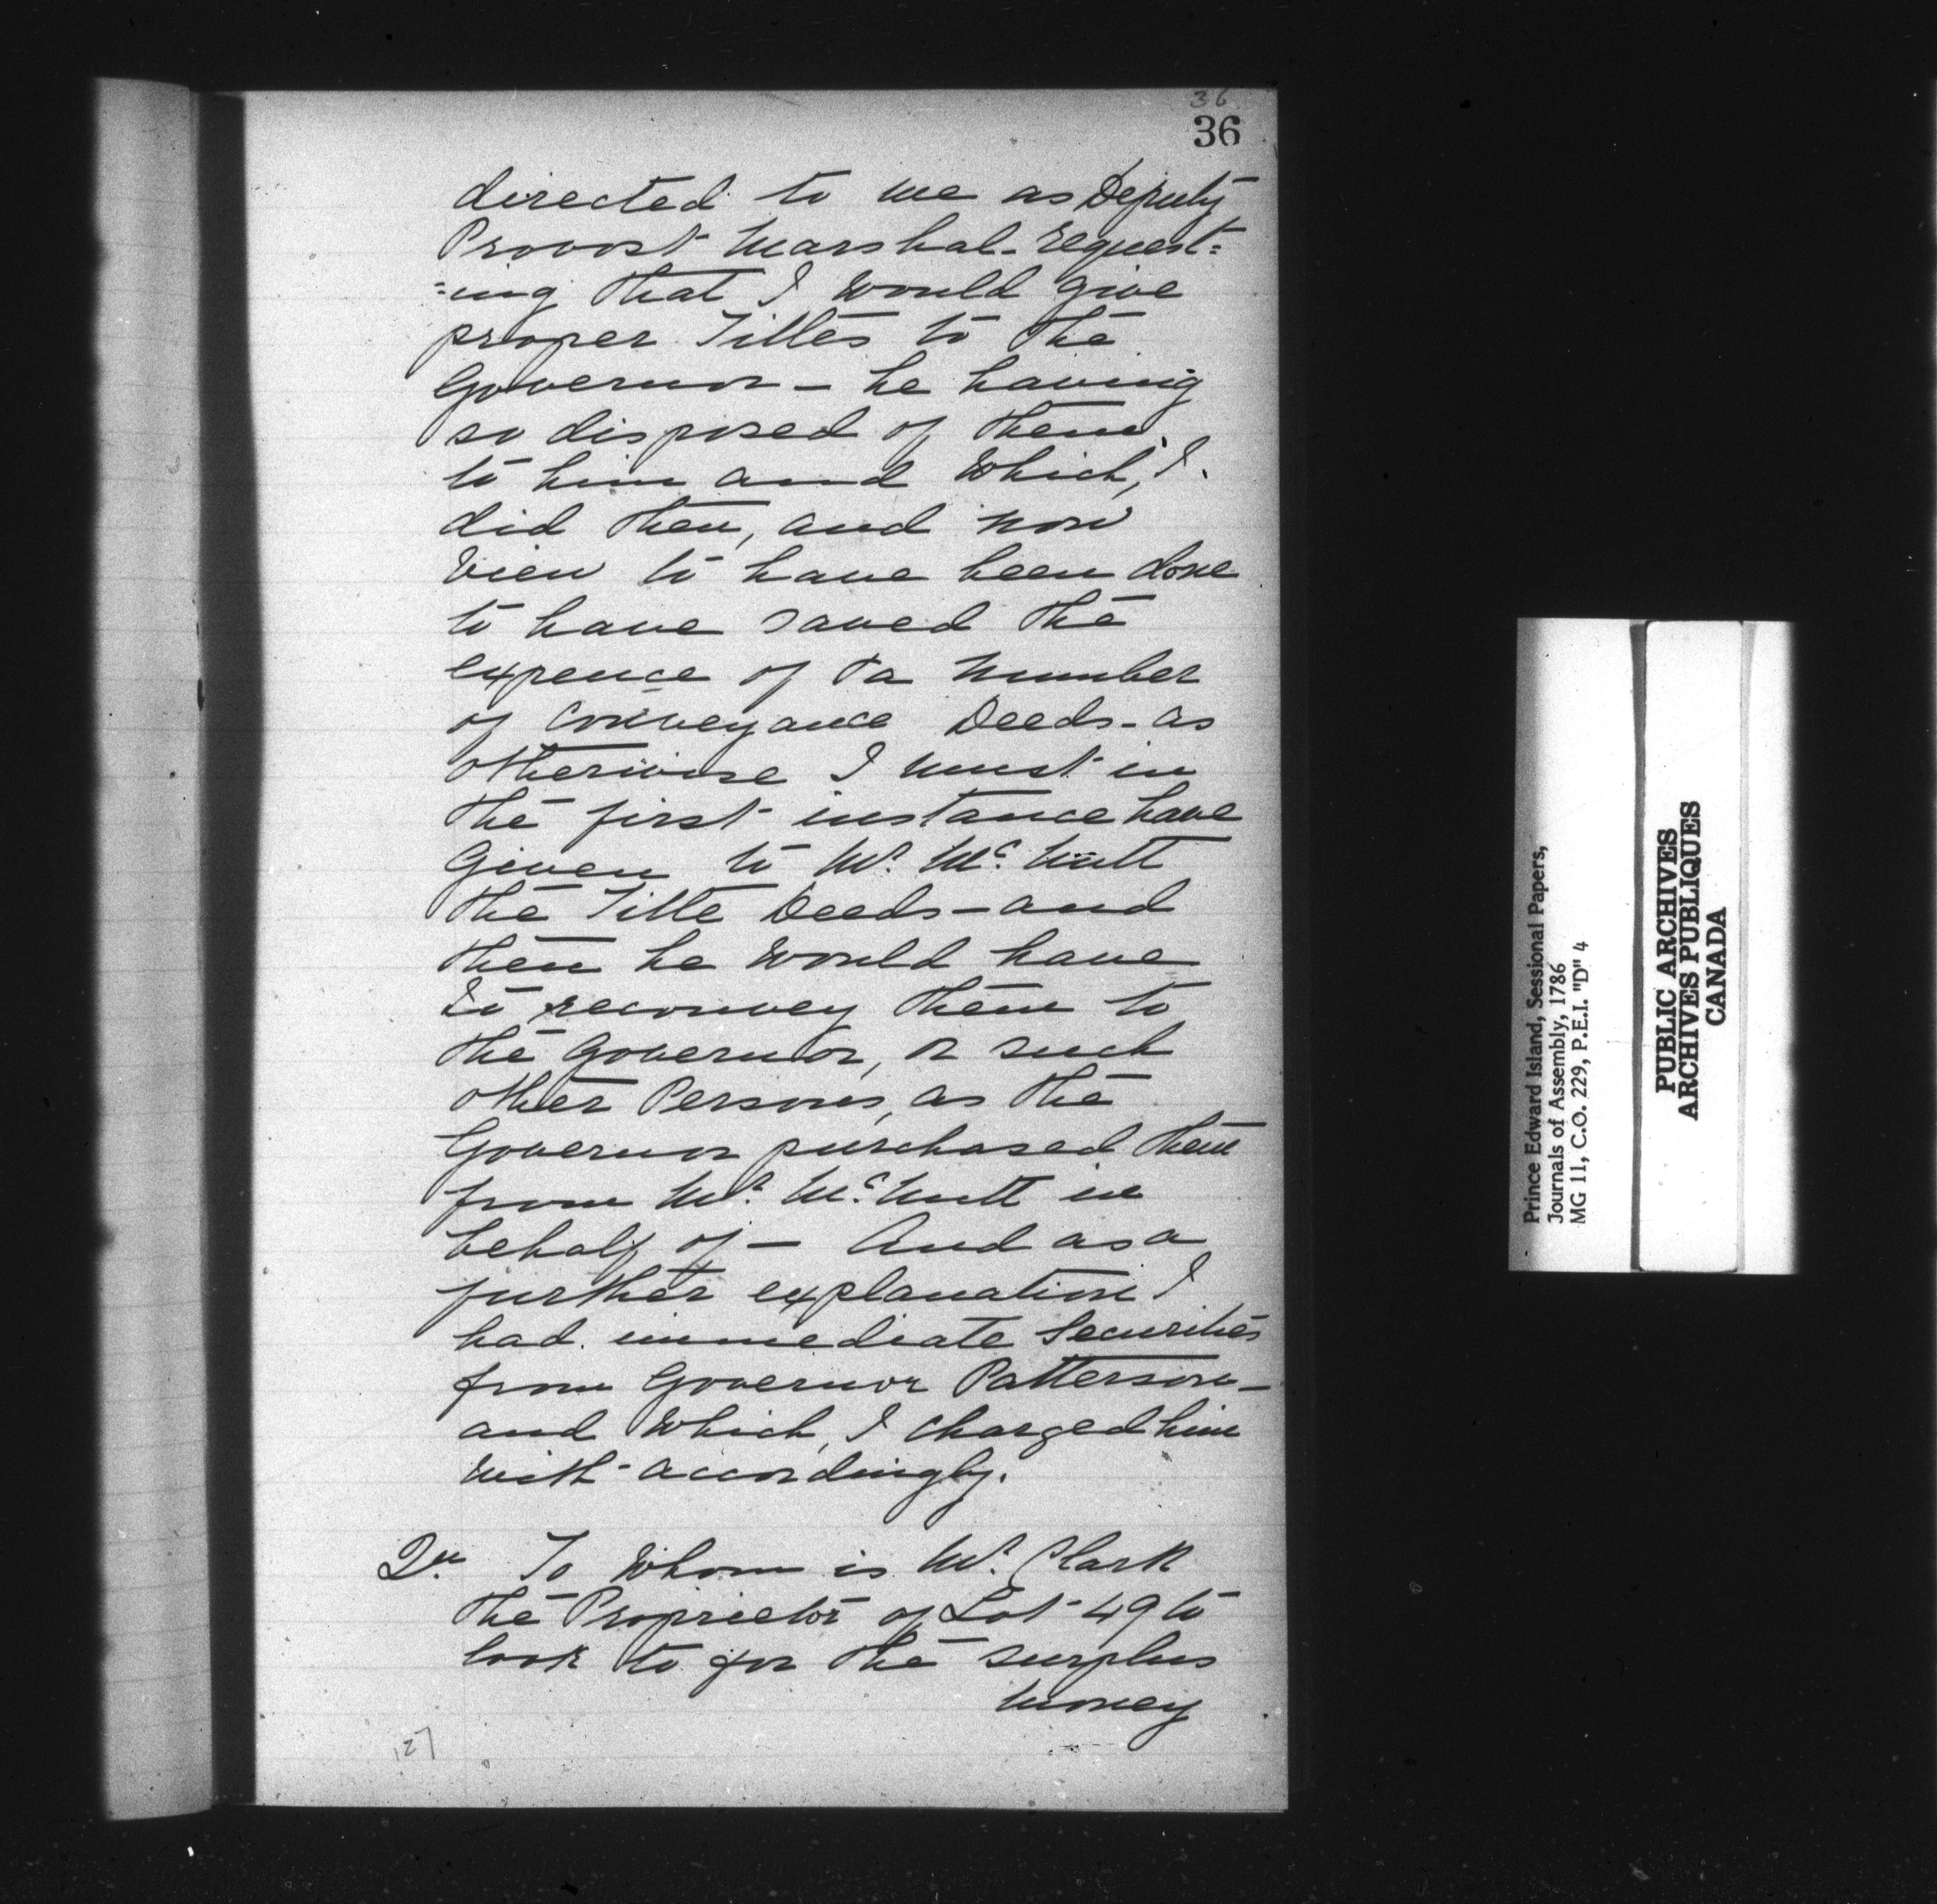 36
36
directed to me as Deputy
Provost Marshal - request=
=ing that I would give
proper Titles to the
Governor - he having
so disposed of them
to him and which, I
did then, and now
view to have been done
to have saved the
expence of a number
of conveyance Deeds - as
otherwise I must in
the first instance have
given to Mr. McNutt
the Title Deeds - and
then he would have
to reconvey them to
the Governor, or such
other Persons, as the
Governor purchased them
from Mr. McNutt in
behalf of - And as a
further explanation I
had immediate Securities
from Governor Patterson -
and which, I charged him
with accordingly.
Qu. To whom is Mr. Clark
the Proprietor of Lot 49 to
look to for the surplus
money
127
Prince Edward Island, Sessional Papers,
Journals of Assembly, 1786
MG 11, C.O. 229, P.E.I. "D" 4
PUBLIC ARCHIVES
ARCHIVES PUBLIQUES
CANADA